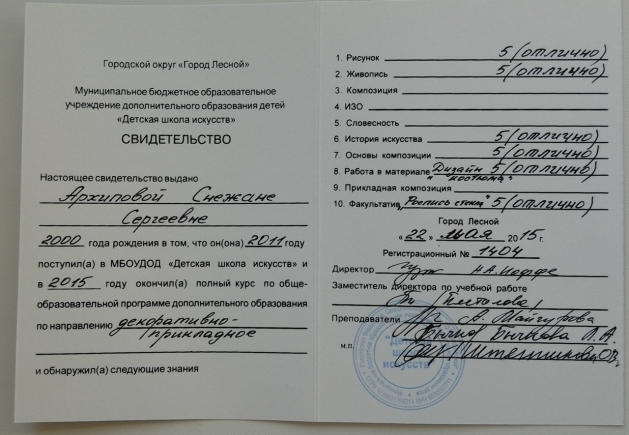 Городской округ «Город Лесной»
Муниципальное бюджетное образовательное
учреждение дополнительного образования детей
«Детская школа искусств»
СВИДЕТЕЛЬСТВО
Настоящее свидетельство выдано
Архиповой Снежане
Сергеевне
2000 года рождения в том, что он(она) 2011 году
поступил(а) в МБОУДОД «Детская школа искусств» и
в 2015 году окончил(а) полный курс по обще-
образовательной программе дополнительного образования
по направлению декоративно-
прикладное
и обнаружил(а) следующие знания
1. Рисунок 5 (отлично)
2. Живопись 5 (отлично)
3. Композиция
4. ИЗО
5. Словесность
6. История искусства 5 (отлично)
7. Основы композиции 5 (отлично)
8. Работа в материале Дизайн 5 (отлично)
"костюма"
9. Прикладная композиция
10. Факультатив "Роспись стекла" 5 (отлично)
Город Лесной
«22» мая 2015г.
Регистрационный № 1404
Директор Н.А. Иоффе
Заместитель директора по учебной работе
Преподаватели
м.п.
"Детская
школа
искусств"